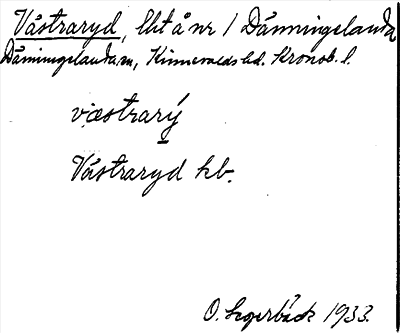 Västraryd, lht å nr 1 Dänningelanda
Dänningelanda sn, Kinnevalds hd. Kronob. l.
væstrarý
Västraryd hb.
O. Lagerbäck 1933.